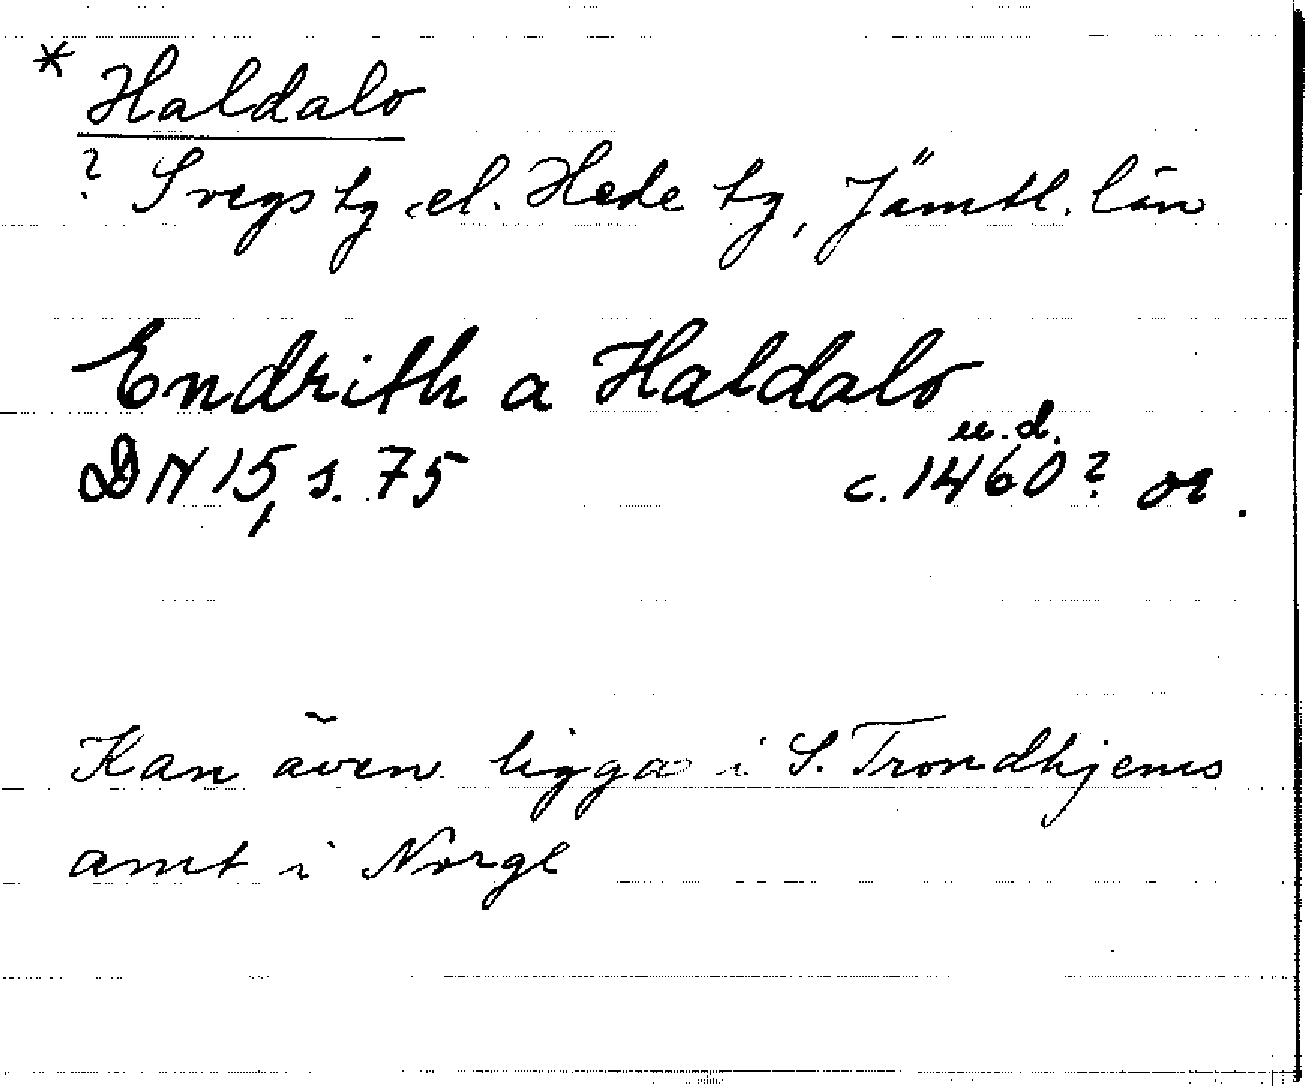 * Haldalo
? Svegs tg. el. Hede tg, Jämtl. län
Endrith a Haldalo
u.d.
DN 15, s. 75 c. 1460? or.
Kan även ligga i S. Trondhjems
amt i Norge